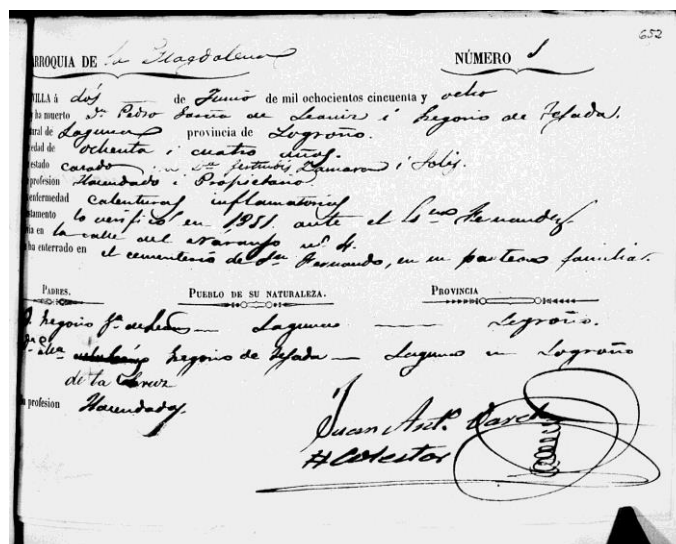 652
RROQUIA DE la Magdalena NÚMERO 1
VILLA á dós de Junio de mil ochocientos cincuenta y ocho
ha muerto Dn Pedro García de Leaniz i Gregorio de Tejada.
ral de Laguna provincia de Logroño.
edad de ochenta i cuatro años.
estado casado Da Gertrudis Zamora i Solis.
profesion Hacendado i Propietario.
enfermedad calenturas inflamatorias
stamento lo verificó en 1851 ante el Esno Fernandez
ia en la calle del Naranjo nº 4.
ha enterrado en el cementerio de Sn Fernando, en un familiar.
PADRES. PUEBLO DE SU NATURALEZA. PROVINCIA
Gregorio Ga de Laguna Logroño.
Gregorio de Tejada Laguna en Logroño
de la Cruz
profesion Hacendados.
Juan Anto.
Colector